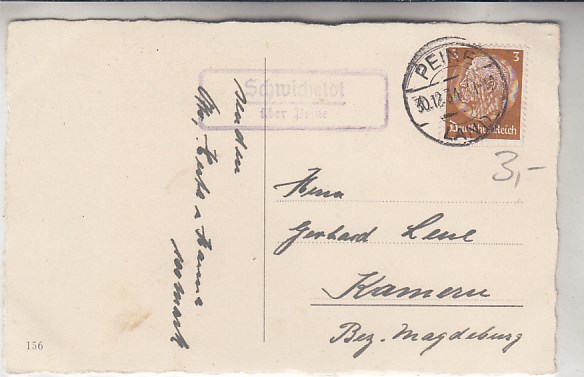 Schwicheldt
über Peine
PEINE
30.12.34
LAND
3
Deutsches Reich
3,-
senden
Herrn
Gerhard Leue
Kamern
Bez. Magdeburg
156